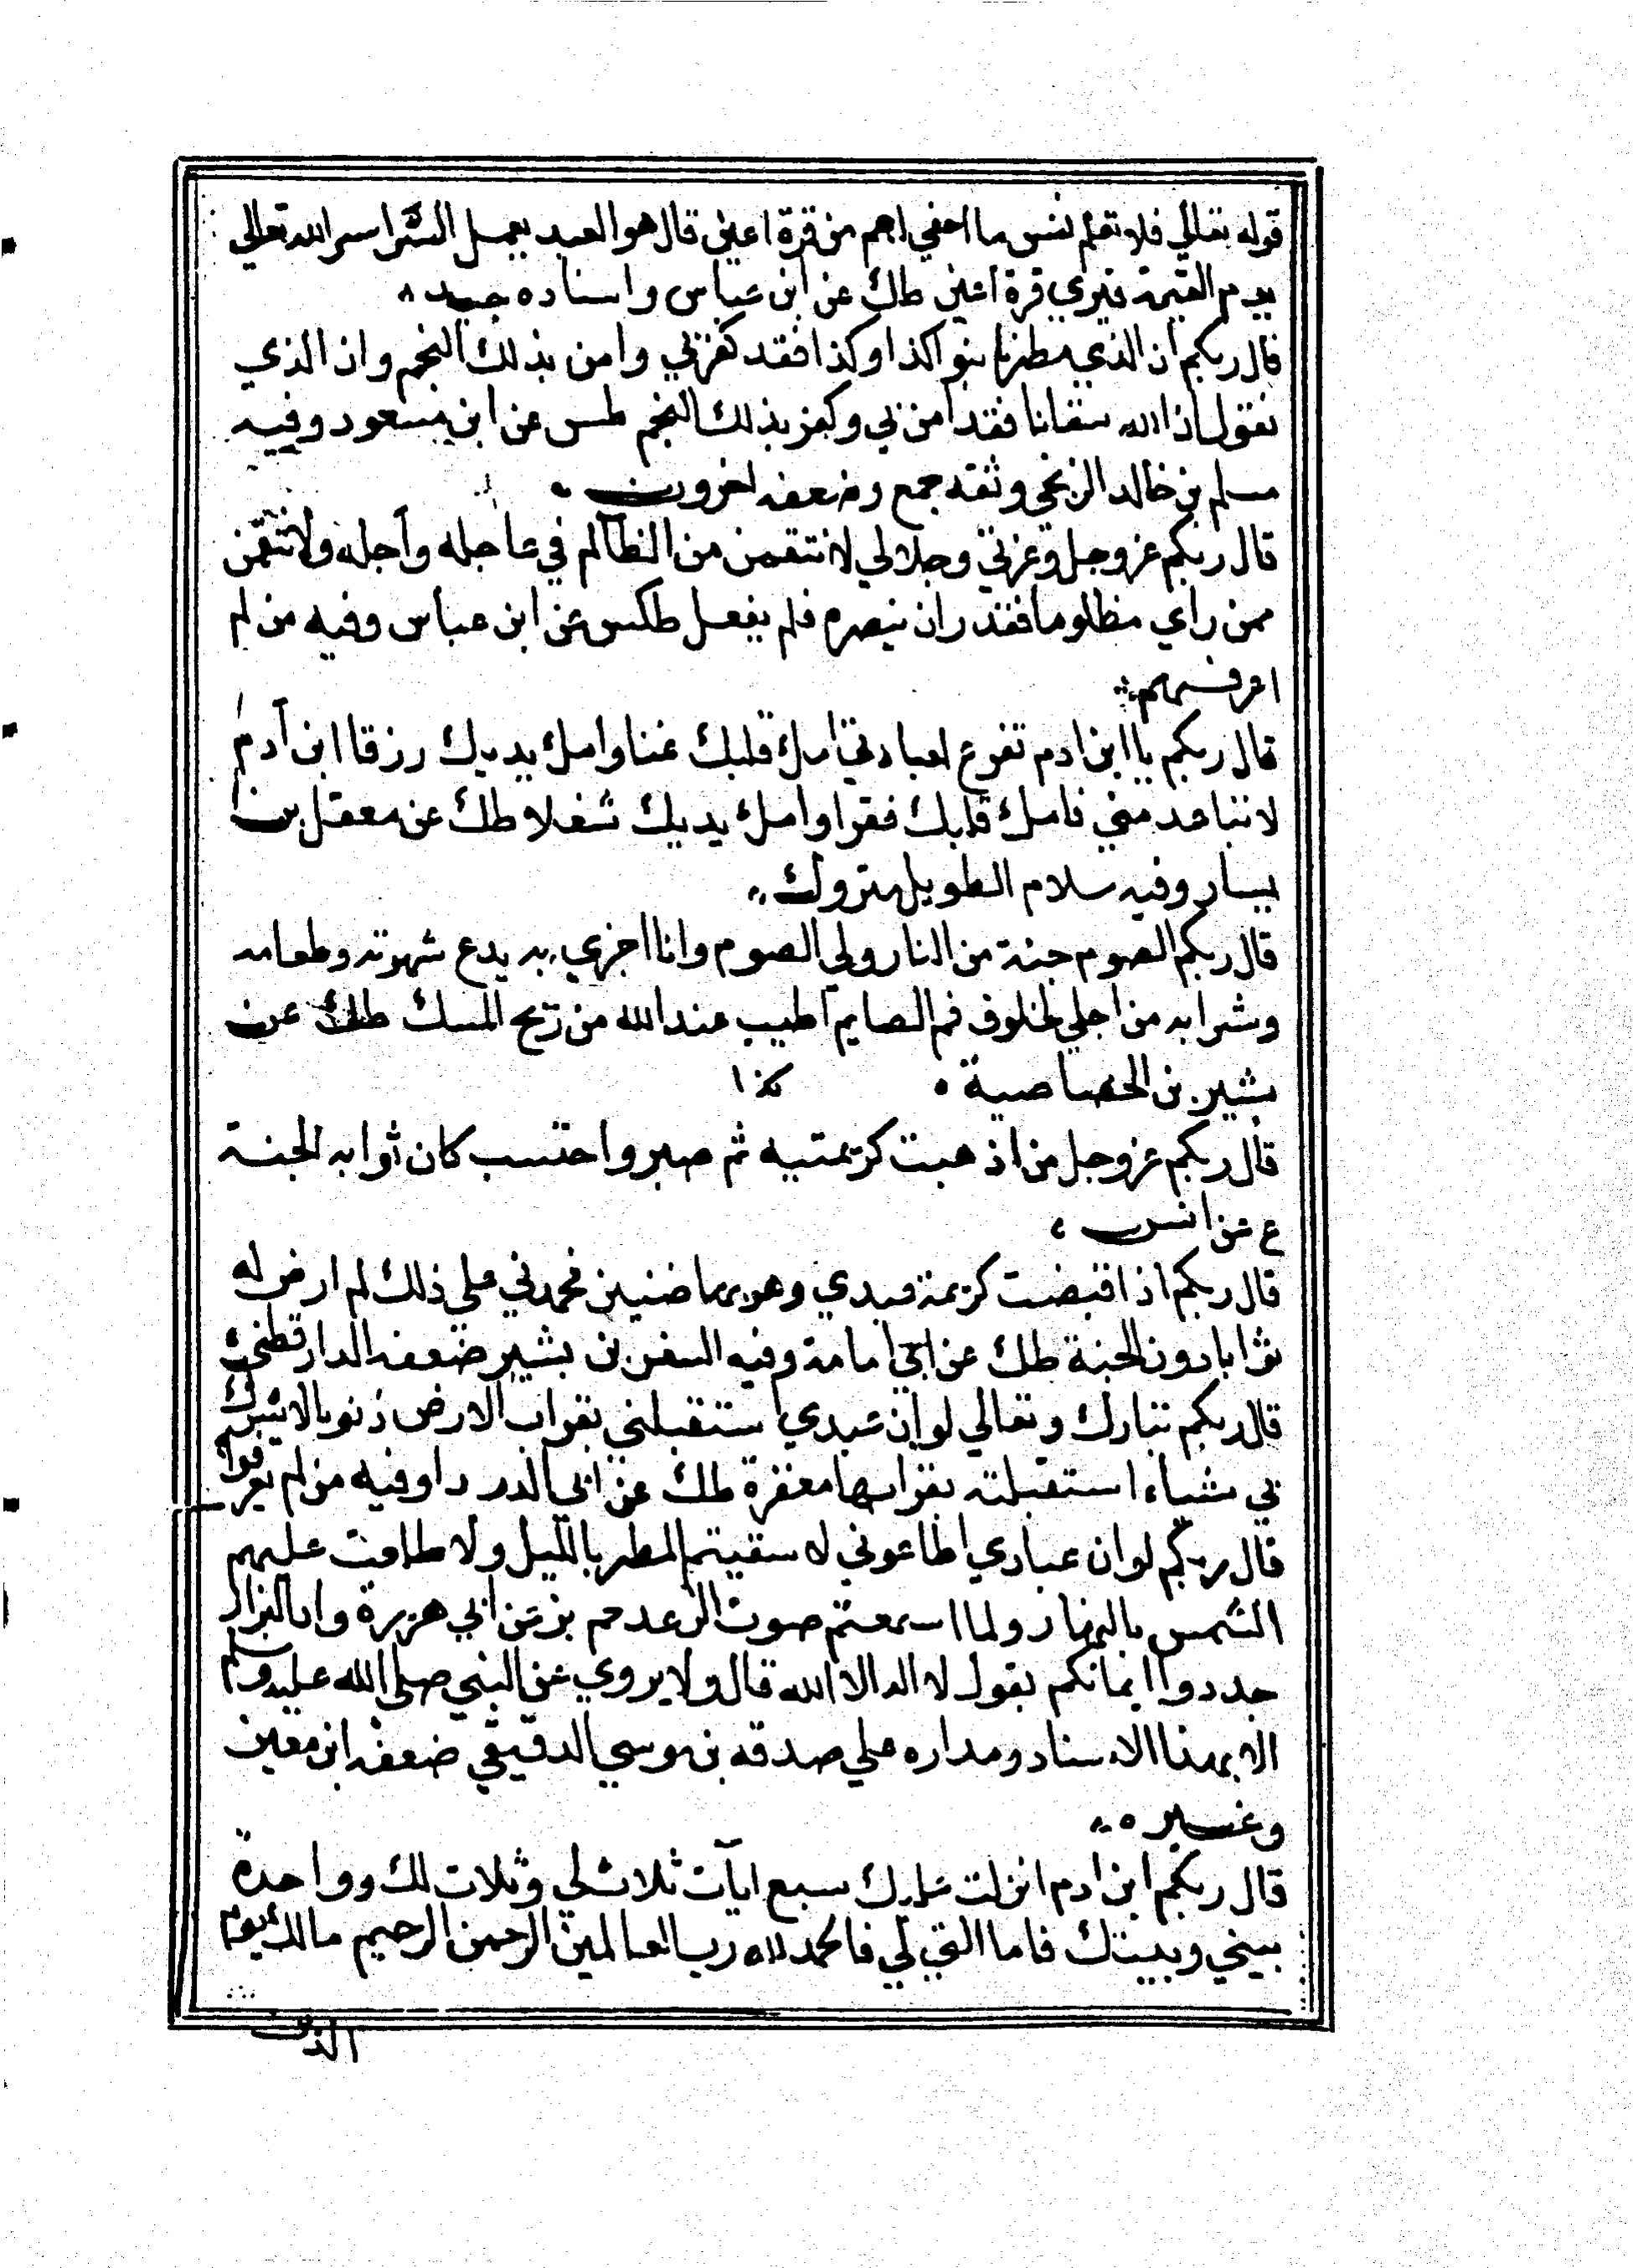 قوله تعالي فلا تعلم نفس ما اخفي لهم من قرة اعين قال هو العبد يعمل السر اسره الله تعالي
يوم القيمة فيري قرة اعين طك عن ابن عباس واسناده جيد
قال ربكم ان الذي مطرنا بنوا كذا وكذا فقد كفر بي وامن بذلك النجم وان الذي
نقول ان الله سقانا فقد امن بي وكفر بذلك النجم طس عن ابن مسعود وفيه
مسلم بن خالد الزنجي وثقه جمع وضعفه اخرون
قال ربكم عز وجل وعزتي وجلالي لانتقمن من الظالم في عاجله وآجله ولانتقمن
ممن راي مظلوما فقدر ان ينصره فلم يفعل طكس عن ابن عباس وفيه من لم
اعرفهم
قال ربكم يا ابن ادم تفرع لعبادتي املء قلبك غنا واملء يديك رزقا ابن آدم
لا تباعد مني فاملء قلبك فقرا واملء يديك شغلا طك عن معقل بن
يسار وفيه سلام الطويل متروك
قال ربكم الصوم جنة من النار ولي الصوم وانا اجزي به يدع شهوته وطعامه
وشرابه من اجلي لخلوف فم الصايم اطيب عند الله من ريح المسك طك عن
بشير بن الخصاصية كذا
قال ربكم عز وجل من اذهبت كريمتيه ثم صبر واحتسب كان ثوابه الجنة
ع عن انس
قال ربكم اذا قبضت كريمة عبدي وهو بها ضنين فحمدني علي ذلك لم ارض له
ثوابا دون الجنة طك عن ابي امامة وفيه السفر بن بشير ضعفه الدارقطني
قال ربكم تبارك وتعالي لو ان عبدي استقبلني بقراب الارض ذنوبا لا يشرك
بي شياء استقبلته بقرابها مغفرة طك عن ابي الدرداء وفيه من لم يعرفوا
قال ربكم لو ان عبادي اطاعوني لاسقيتهم المطر بالليل ولاطلعت عليهم
الشمس بالنهار ولما اسمعتهم صوت الرعد حم بز عن ابي هريرة وزاد البزار
جددوا ايمانكم بقول لا اله الا الله قال ولا يروي عن النبي صلي الله عليه وسلم
الا بهذا الاسناد ومداره علي صدقه بن موسي الدقيقي ضعفه ابن معين
وغيره
قال ربكم ابن ادم انزلت عليك سبع ايآت ثلاث لي وثلاث لك وواحدة
بيني وبينك فاما التي لي فالحمد لله رب العالمين الرحمن الرحيم مالك يوم
الدين